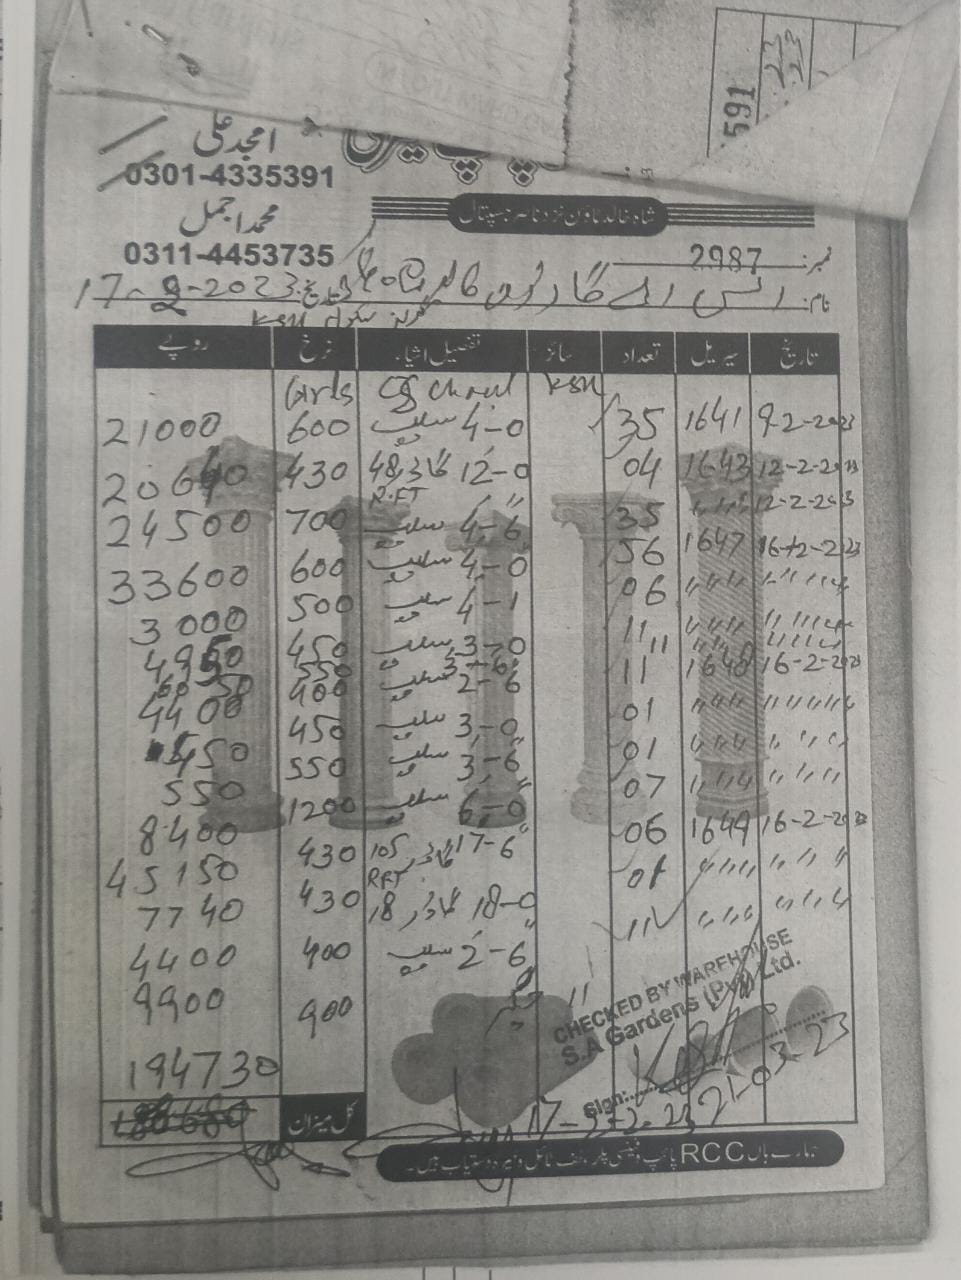 591
امجد علی
0301-4335391
محمد اجمل
0311-4453735
شاہ خالد ٹاؤن نزد ناصر ہسپتال
نمبر: 2987
نام: ایس اے گارڈن تاریخ: 17-2-2023
گرلز سکول KSK
تاریخ سیریل تعداد سائز تفصیل اشیاء نرخ روپے
KSK School Girls
9-2-2023 1641 35 4-0 سلیب 600 21000
12-2-2023 1643 04 12-0 گاڈر 48 R.FT 430 20640
12-2-2023 〃〃〃 35 4-6 سلیب 700 24500
16-2-2023 1647 56 4-0 سلیب 600 33600
〃〃〃〃〃 〃〃〃〃 06 4-1 سلیب 500 3000
〃〃〃〃〃 〃〃〃〃 11 3-0 سلیب 450 4950
〃〃〃〃〃 〃〃〃〃 11 3-6 550 6050
16-2-2023 1648 11 2-6 سلیب 400 4400
〃〃〃〃〃 〃〃〃〃 01 3-0 سلیب 450 450
〃〃〃〃 〃〃〃〃 01 3-6 سلیب 550 550
〃〃〃〃 〃〃〃〃 07 6-0 سلیب 1200 8400
16-2-2023 1649 06 17-6 گاڈر 105 RFT 430 45150
〃〃〃〃 〃〃〃〃 01 18-0 گاڈر 18 430 7740
〃〃〃〃 〃〃〃〃 11 2-6 سلیب 400 4400
11 900 9900
CHECKED BY WAREHOUSE
S.A Gardens (Pvt) Ltd.
Sign:
21-03-23
194730
کل میزان
ہمارے ہاں RCC پائپ، فینسی پلر، ٹف ٹائل وغیرہ دستیاب ہیں۔